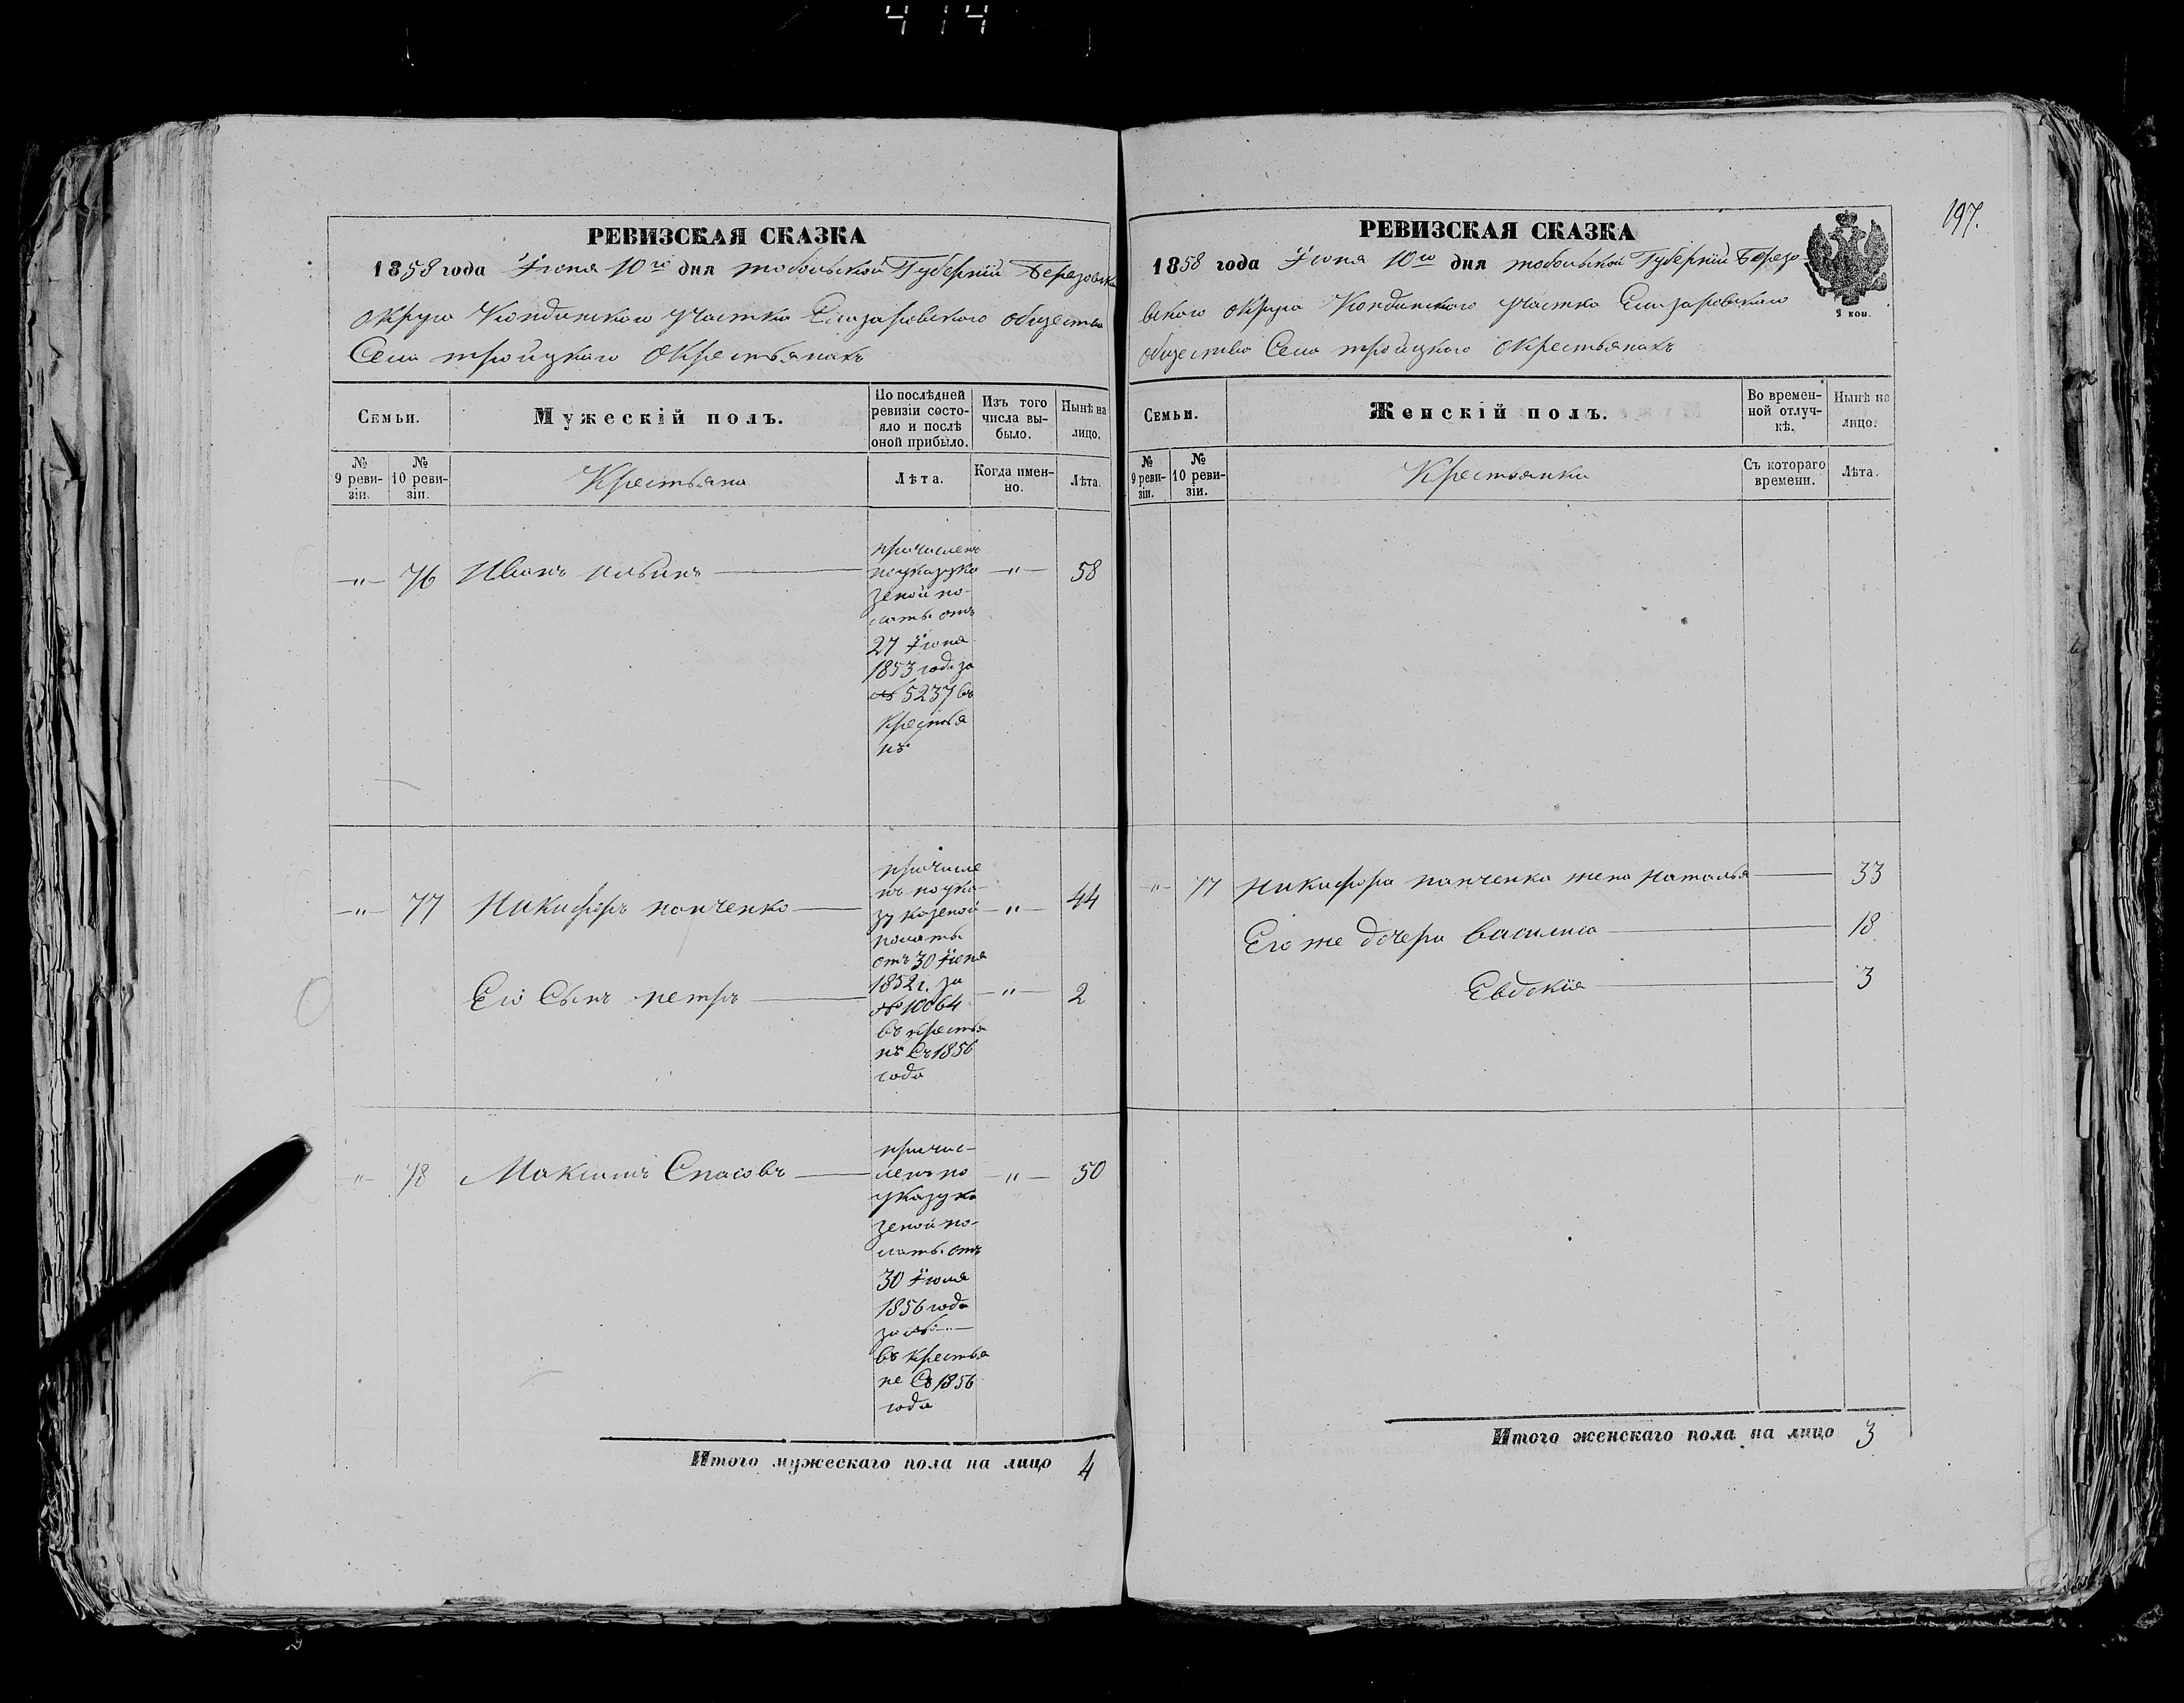 414
РЕВИЗСКАЯ СКАЗКА
1858 года Іюня 10го дня тобольской Губерніи Березовска
округа Кондинскаго участка Елизаровскаго общества
Села троицкаго окрестьянахъ
Семьи.
Мужескій полъ.
По послѣдней ревизіи состо-
яло и послѣ оной прибыло.
Изъ того числа вы-
было.
Нынѣ на лицо.
№ 9 реви-
зіи.
№ 10 реви-
зіи.
Крестьяна
Лѣта.
Когда имен-
но.
Лѣта.
—"— 76 Иванъ —"— 58
причисленъ
поуказу ка
зеной по-
латы отъ
27 Іюня
1853 года за
№ 5237 въ
крестья
нѣ
—"— 77 Никифоръ панченко —"— 44
причисле
нъ по ука-
зу казеной
полаты
отъ 30 Іюня
1852 г. за
№ 10064
въ крестья
нѣ Съ 1856
года
Его Сынъ петръ —"— 2
—"— 78 Максимъ Спасовъ —"— 50
причис-
ленъ по
указу ка
зеной по-
латы отъ
30 Іюня
1856 года
за № —"—
въ крестья
не Съ 1856
года
Итого мужескаго пола на лицо 4
197.
РЕВИЗСКАЯ СКАЗКА
1858 года Іюня 10го дня тобольской Губерніи Березо-
вскаго округа Кондинскаго участка Елизаровскаго
общества Села троицкаго окрестьянахъ
2 коп.
Семьи.
Женскій полъ.
Во времен-
ной отлуч-
кѣ.
Нынѣ на лицо.
№ 9 реви-
зіи.
№ 10 реви-
зіи.
Крестьянки
Съ котораго времени.
Лѣта.
—"— 77 никифора панченка жена наталья 33
Его же дочери василиса 18
Евдокія 3
Итого женскаго пола на лицо 3